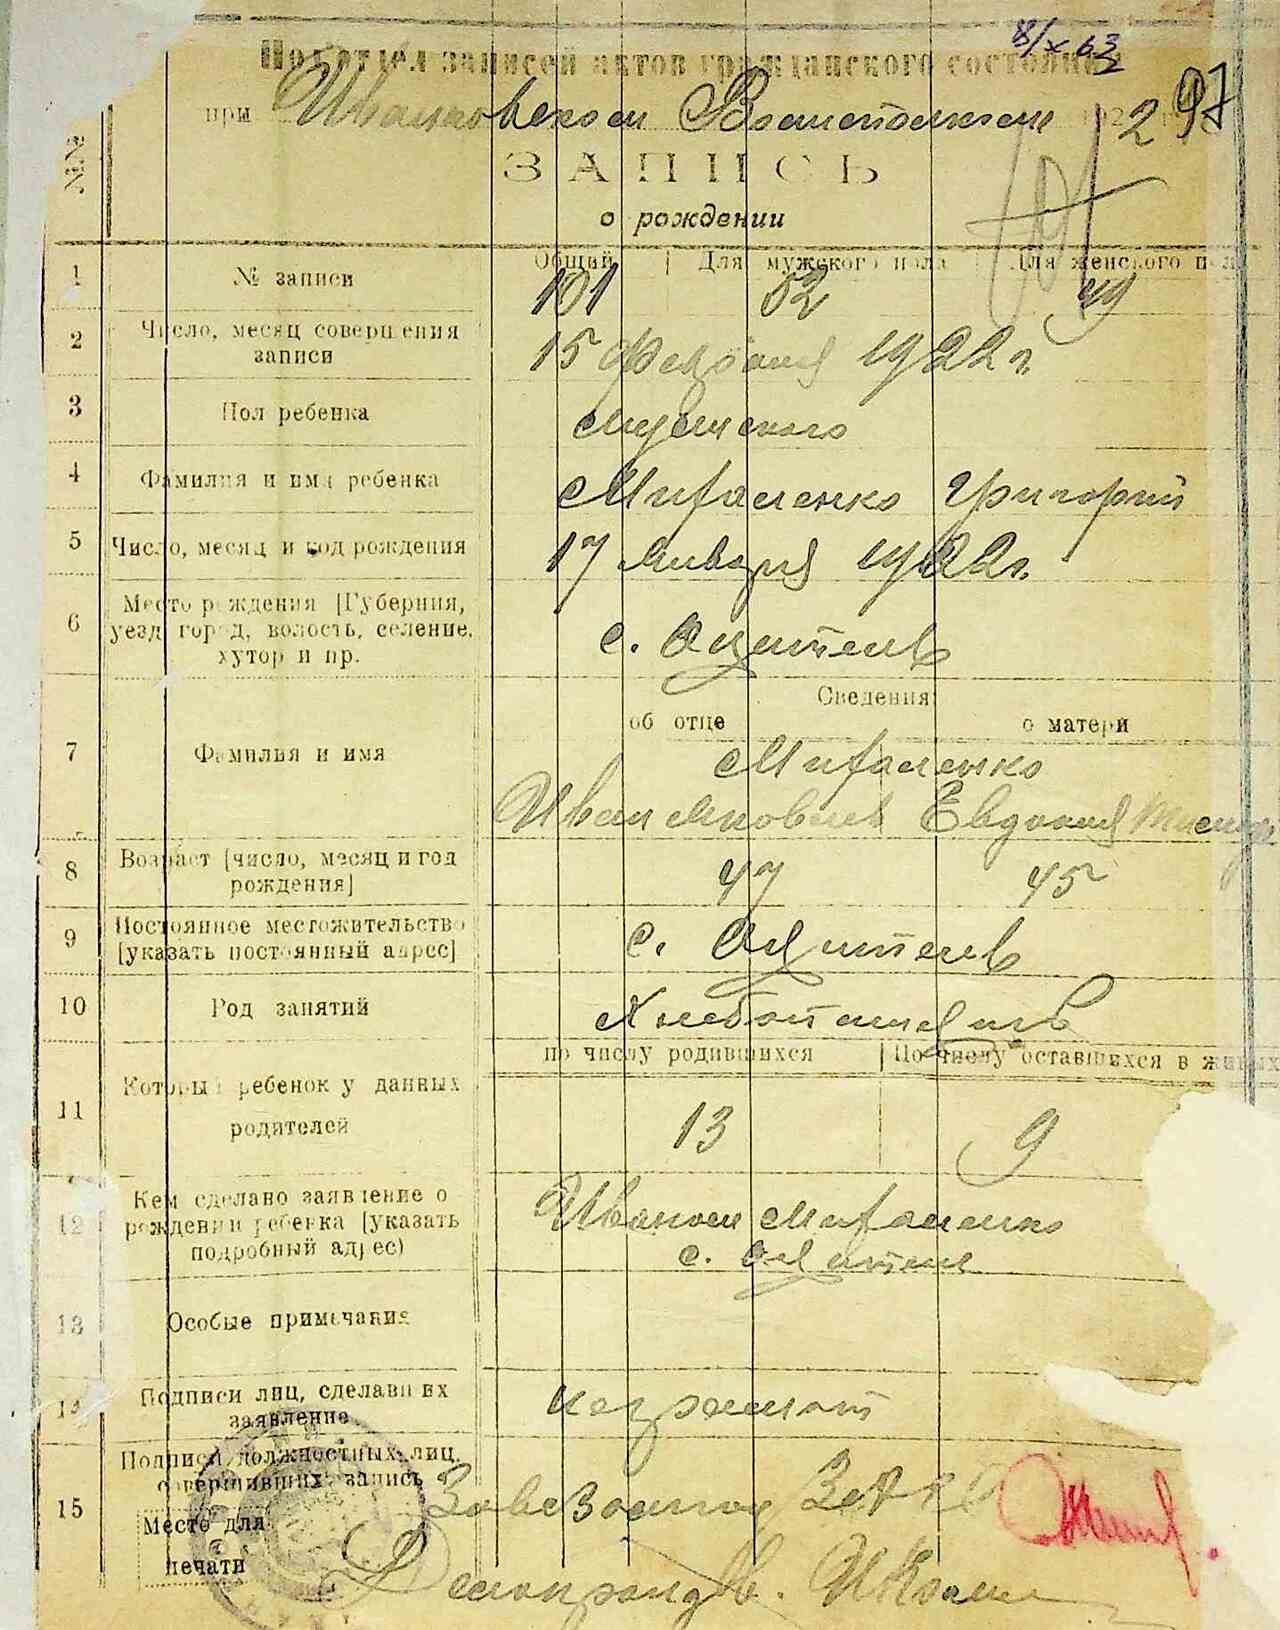 8/X 63
Подотдел записей актов гражданского состояния
при Ивановском Волисполкоме 192
297
№№
ЗАПИСЬ
о рождении
Общий | Для мужского пола | Для женского пола
1 № записи 101 52 49
2 Число, месяц совершения
записи
15 февраля 1922 г.
3 Пол ребенка мужского
4 Фамилия и имя ребенка Григорий
5 Число, месяц и год рождения 17 января 1922 г.
6 Место рождения [Губерния,
уезд, город, волость, селение,
хутор и пр.
с.
Сведения
об отце о матери
7 Фамилия и имя
Иван Яковлев Евдокия
8 Возраст [число, месяц и год
рождения]
47 45
9 Постоянное местожительство
[указать постоянный адрес]
с.
10 Род занятий Хлебопашец
по числу родившихся | По числу оставшихся в живых
11 Который ребенок у данных
родителей
13 9
12 Кем сделано заявление о
рождении ребенка [указать
подробный адрес)
Иваном
с.
13 Особые примечания
14 Подписи лиц, сделавших
заявление
неграмот
15 Подписи должностных лиц,
совершивших запись
Место для
печати